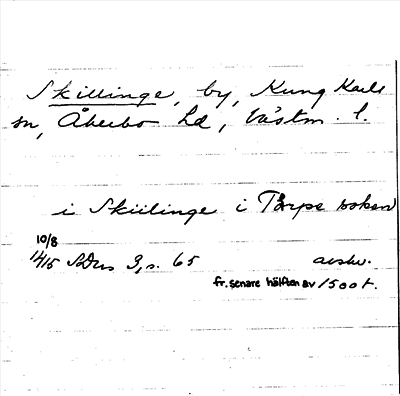 Skillinge, by, Kung Karls
sn, Åkerbo hd, Västm. l.
i Skiilinge i Torpe soken
10/8
1415 SDns 3, s. 65 avskr.
fr. senare hälften av 1500 t.